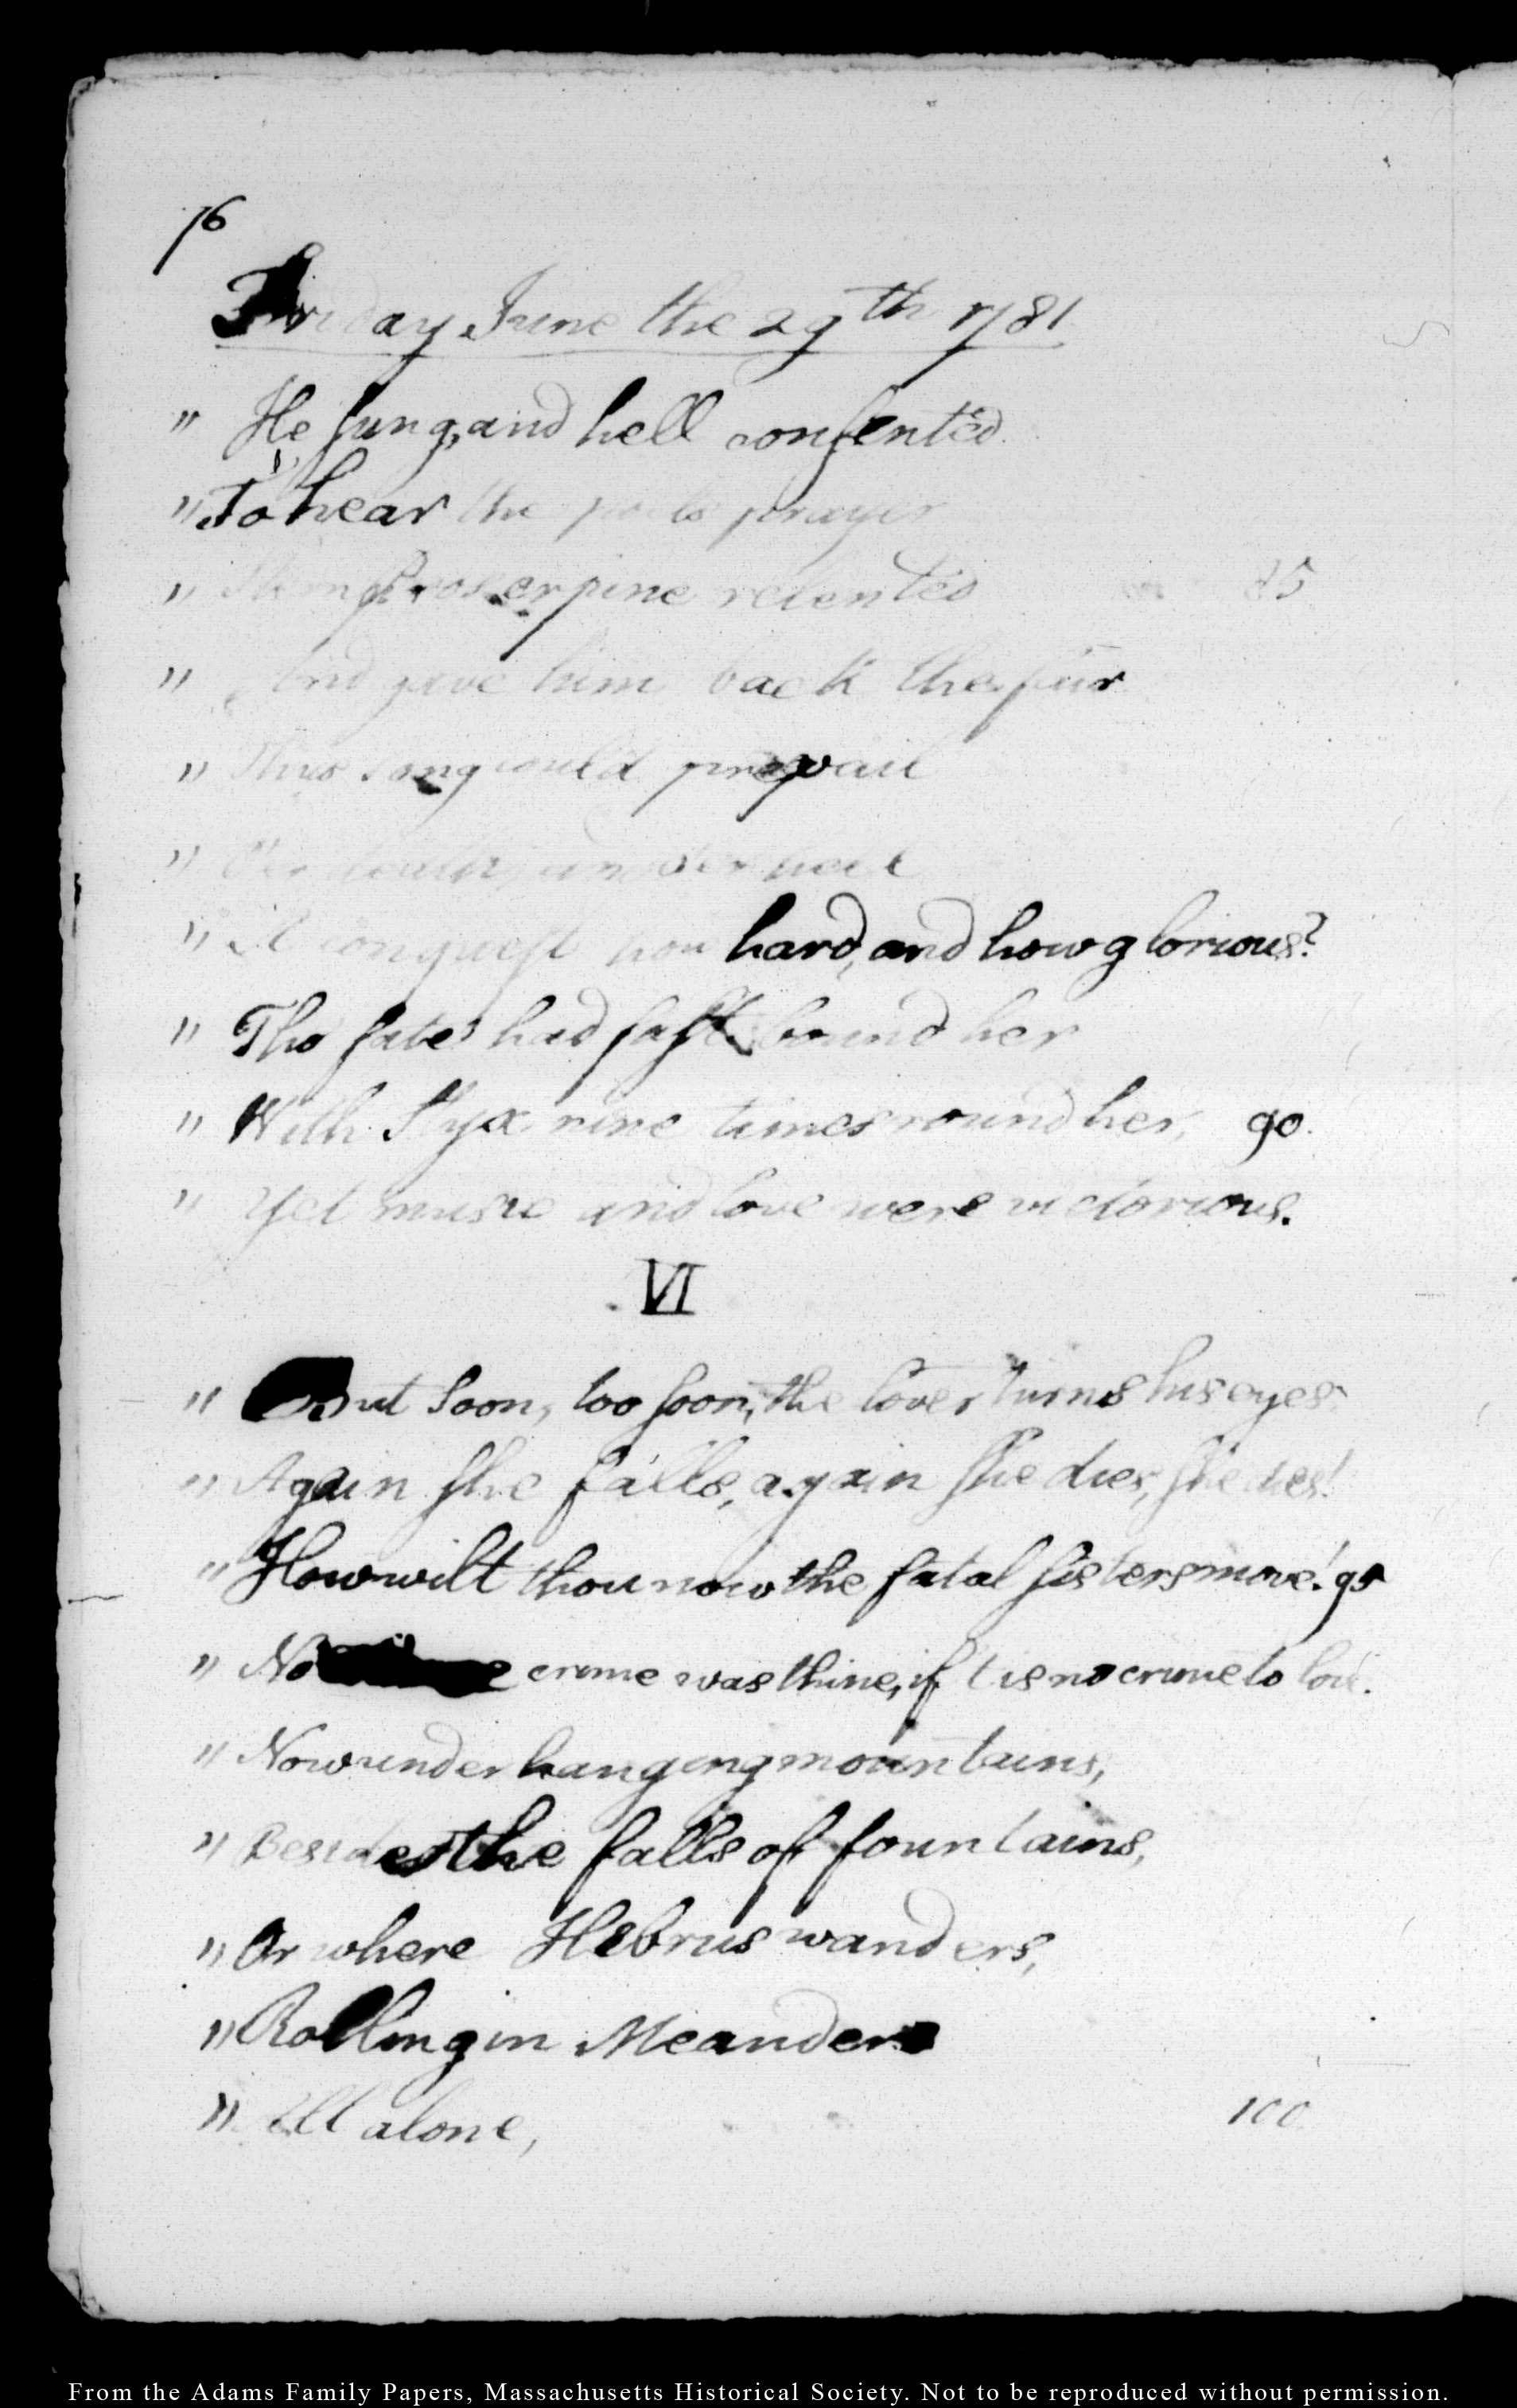 76
Friday June the 29th 1781
" He sung, and hell consented
" To hear the poets prayer
" Stern Proserpine relented 85
" And gave him back the fair
" Thus song could prevail
" O'er death, and o'er hell
" A conquest how hard, and how glorious?
" Tho fate had fast bound her
" With Styx nine times round her, 90.
" Yet music and love were victorious.
VI
" But soon, too soon, the lover turns his eyes:
" Again she falls, again she dies, she dies!
" How wilt thou now the fatal sisters move! 95
" No crime was thine, if t is no crime to love.
" Now under hanging mountains,
" Besides the falls of fountains,
" Or where Hebrus wanders,
" Rolling in Meanders
" All alone, 100
From the Adams Family Papers, Massachusetts Historical Society. Not to be reproduced without permission.